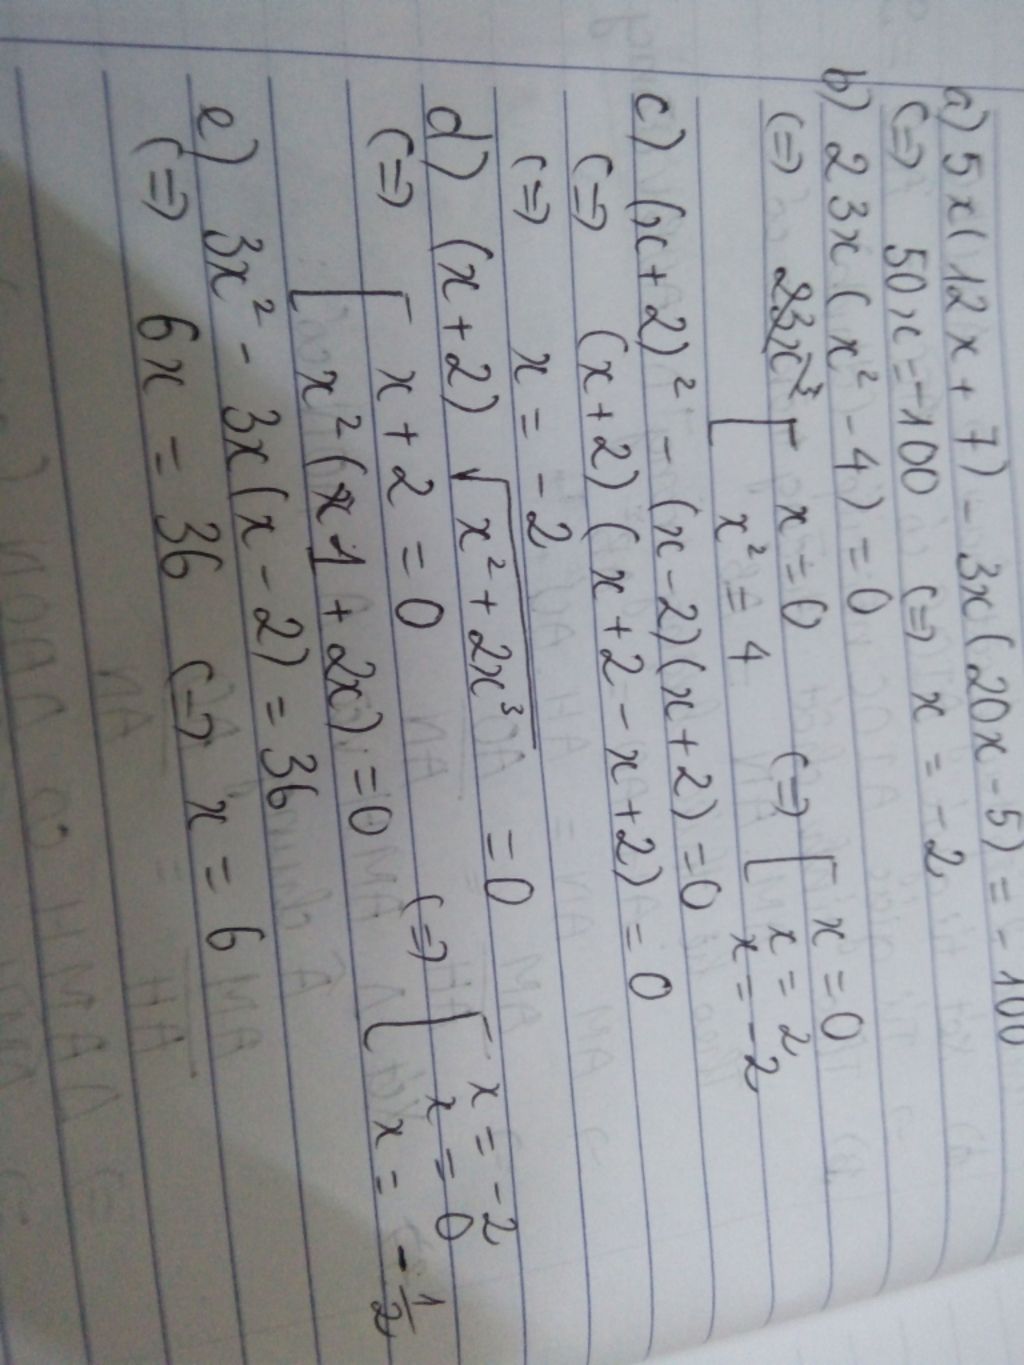 a) 5x(12x + 7) - 3x(20x - 5) = - 100
(=> 50x = -100 (=> x = -2
b) 23x (x² - 4) = 0
(=> [ x = 0 (=> [ x = 0
x² = 4 x = 2
x = -2
c) (x + 2)² - (x - 2)(x + 2) = 0
(=> (x + 2) (x + 2 - x + 2) = 0
(=> x = -2
d) (x + 2) √x² + 2x³ = 0
(=> [ x + 2 = 0 (=> [ x = -2
x² (1 + 2x) = 0 x = 0
x = - 1/2
e) 3x² - 3x(x - 2) = 36
(=> 6x = 36 (=> x = 6